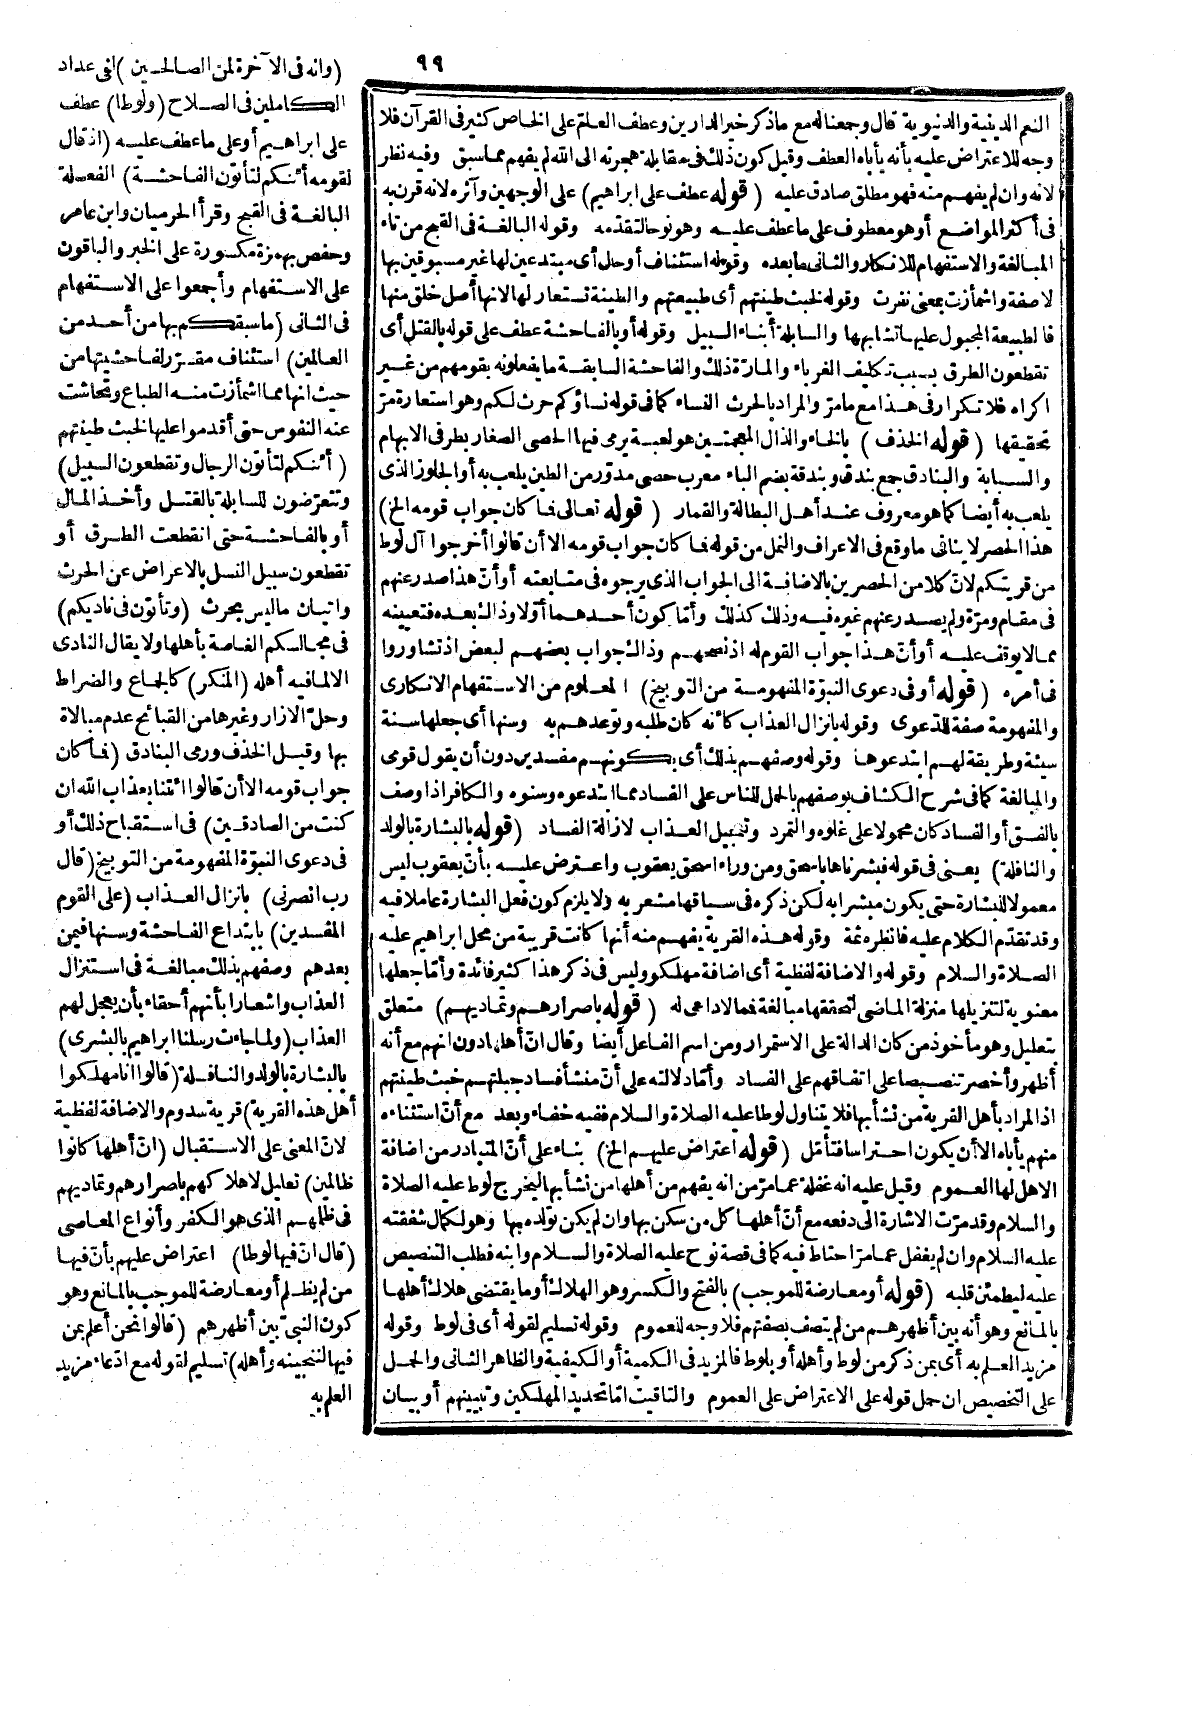 ٩٩
النعم الدينية والدنيوية قال وجمعناله مع ماذكر خير الدارين وعطف العام على الخاص كثير فى القرآن فلا
وجه للاعتراض عليه بأنه يأباه العطف وقيل كون ذلك فى مقابلة هجرته الى الله لم يفهم مما سبق وفيه نظر
لانه وان لم يفهم منه فهو مطلق صادق عليه (قوله عطف على ابراهيم) على الوجهين وآثره لانه قرن به
فى أكثر المواضع أو هو معطوف على ما عطف عليه وهو نوحا لتقدّمه وقوله البالغة فى القبح من تاء
المبالغة والاستفهام للانكار والثانى ما بعده وقوله استئناف أو حال أى مبتدعين لها غير مسبوقين بها
لا صفة واشمأزت بمعنى نفرت وقوله لخبث طينتهم أى طبيعتهم والطينة تستعار لها لانها أصل خلق منها
فالطبيعة المجبول عليها تشابهها والسابلة أبناء السبيل وقوله أو بالفاحشة عطف على قوله بالقتل أى
تقطعون الطرق بسبب تكليف الغرباء والمارّة ذلك والفاحشة السابقة ما يفعلونه بقومهم من غير
اكراه فلا تكرار فى هذا مع ما مرّ والمراد بالحرث النساء كما فى قوله نساؤكم حرث لكم وهو استعارة مرّ
تحقيقها (قوله الخذف) بالخاء والذال المعجمتين هو لعبة يرمى فيها الحصى الصغار بطرفى الابهام
والسبابة والبنادق جمع بندق وبندقة بضم الباء معرب حصى مدوّر من الطين يلعب به أو الجلوز الذى
يلعب به أيضا كما هو معروف عند أهل البطالة والقمار (قوله تعالى فما كان جواب قومه الخ)
هذا الحصر لا ينافى ما وقع فى الاعراف والنمل من قوله فما كان جواب قومه الا أن قالوا أخرجوا آل لوط
من قريتكم لانّ كلا من الحصرين بالاضافة الى الجواب الذى يرجوه فى متابعته أو أنّ هذا صدر عنهم
فى مقام ومرّة ولم يصدر عنهم غيره فيه وذلك كذلك وأمّا كون أحدهما أوّلا وذاك بعده فتعيينه
مما لا يوقف عليه أو أنّ هذا جواب القوم له اذ نصحهم وذاك جواب بعضهم لبعض اذ تشاوروا
فى أمره (قوله أو فى دعوى النبوّة المفهومة من التوبيخ) المعلوم من الاستفهام الانكارى
والمفهومة صفة للدعوى وقوله بانزال العذاب كأنه كان طلبه وتوعدهم به وسنها أى جعلها سنة
سيئة وطريقة لهم ابتدعوها وقوله وصفهم بذلك أى بكونهم مفسدين دون أن يقول قومى
والمبالغة كما فى شرح الكشاف بوصفهم بالحمل للناس على الفساد مما ابتدعوه وسنوه والكافر اذا وصف
بالفسق أو الفساد كان محمولا على غلوه والتمرد وتعجيل العذاب لازالة الفساد (قوله بالبشارة بالولد
والنافلة) يعنى فى قوله فبشرناها باسحق ومن وراء اسحق يعقوب واعترض عليه بأنّ يعقوب ليس
معمولا للبشارة حتى يكون مبشرا به لكن ذكره فى سياقها مشعر به ولا يلزم كون فعل البشارة عاملا فيه
وقد تقدّم الكلام عليه فانظره ثمة وقوله هذه القرية يفهم منه أنها كانت قريبة من محل ابراهيم عليه
الصلاة والسلام وقوله والاضافة لفظية أى اضافة مهلكو وليس فى ذكر هذا كثير فائدة وأمّا جعلها
معنوية لتنزيلها منزلة الماضى لتحققها مبالغة فمما لا داعى له (قوله باصرارهم وتماديهم) متعلق
بتعليل وهو مأخوذ من كان الدالة على الاستمرار ومن اسم الفاعل أيضا وقال انّ أهلها دون انهم مع أنه
أظهر وأخصر تنصيصا على اتفاقهم على الفساد وأمّا دلالته على أنّ منشأ فساد جبلتهم خبث طينتهم
اذ المراد بأهل القرية من نشأ بها فلا يتناول لوطا عليه الصلاة والسلام ففيه خفاء وبعد مع أنّ استثناءه
منهم يأباه الا أن يكون احتراسا فتأمّل (قوله اعتراض عليهم الخ) بناء على أنّ المتبادر من اضافة
الاهل لها العموم وقيل عليه انه غفلة عما مرّ من انه يفهم من أهلها من نشأ بها ليخرج لوط عليه الصلاة
والسلام وقد مرّت الاشارة الى دفعه مع أنّ أهلها كل من سكن بها وان لم يكن تولّده بها وهو لكمال شفقته
عليه السلام وان لم يغفل عما مرّ احتاط فيه كما فى قصة نوح عليه الصلاة والسلام وابنه فطلب التنصيص
عليه ليطمئن قلبه (قوله أو معارضة للموجب) بالفتح والكسر وهو الهلاك أو ما يقتضى هلاك أهلها
بالمانع وهو أنه بين أظهرهم من لم يتصف بصفتهم فلا وجه للعموم وقوله تسليم لقوله أى فى لوط وقوله
مزيد العلم به أى بمن ذكر من لوط وأهله أو بلوط فالمزيد فى الكمية أو الكيفية والظاهر الثانى والحمل
على التخصيص ان حمل قوله على الاعتراض على العموم والتاقيت امّا تحديد المهلكين وتبيينهم أو بيان
(وانه فى الآخرة لمن الصالحين) لفى عداد
الكاملين فى الصلاح (ولوطا) عطف
على ابراهيم أو على ما عطف عليه (اذ قال
لقومه أئنكم لتأتون الفاحشة) الفعلة
البالغة فى القبح وقرأ الحرميان وابن عامر
وحفص بهمزة مكسورة على الخبر والباقون
على الاستفهام وأجمعوا على الاستفهام
فى الثانى (ما سبقكم بها من أحد من
العالمين) استئناف مقرّر لفاحشيتها من
حيث انها مما اشمأزت منه الطباع وتحاشت
عنه النفوس حتى أقدموا عليها لخبث طينتهم
(أئنكم لتأتون الرجال وتقطعون السبيل)
وتتعرّضون للسابلة بالقتل وأخذ المال
أو بالفاحشة حتى انقطعت الطرق أو
تقطعون سبيل النسل بالاعراض عن الحرث
واتيان ما ليس بحرث (وتأتون فى ناديكم)
فى مجالسكم الغاصة بأهلها ولا يقال النادى
الا لما فيه أهله (المنكر) كالجماع والضراط
وحلّ الازار وغيرها من القبائح عدم مبالاة
بها وقيل الخذف ورمى البنادق (فما كان
جواب قومه الا أن قالوا ائتنا بعذاب الله ان
كنت من الصادقين) فى استقباح ذلك أو
فى دعوى النبوّة المفهومة من التوبيخ (قال
رب انصرنى) بانزال العذاب (على القوم
المفسدين) بابتداع الفاحشة وسنها فيمن
بعدهم وصفهم بذلك مبالغة فى استنزال
العذاب واشعارا بأنهم أحقاء بأن يعجل لهم
العذاب (ولما جاءت رسلنا ابراهيم بالبشرى)
بالبشارة بالولد والنافلة (قالوا انا مهلكوا
أهل هذه القرية) قرية سدوم والاضافة لفظية
لانّ المعنى على الاستقبال (انّ أهلها كانوا
ظالمين) تعليل لاهلاكهم باصرارهم وتماديهم
فى ظلمهم الذى هو الكفر وأنواع المعاصى
(قال انّ فيها لوطا) اعتراض عليهم بأنّ فيها
من لم يظلم أو معارضة للموجب بالمانع وهو
كون النبىّ بين أظهرهم (قالوا نحن أعلم بمن
فيها لننجينه وأهله) تسليم لقوله مع ادّعاء مزيد
العلم به